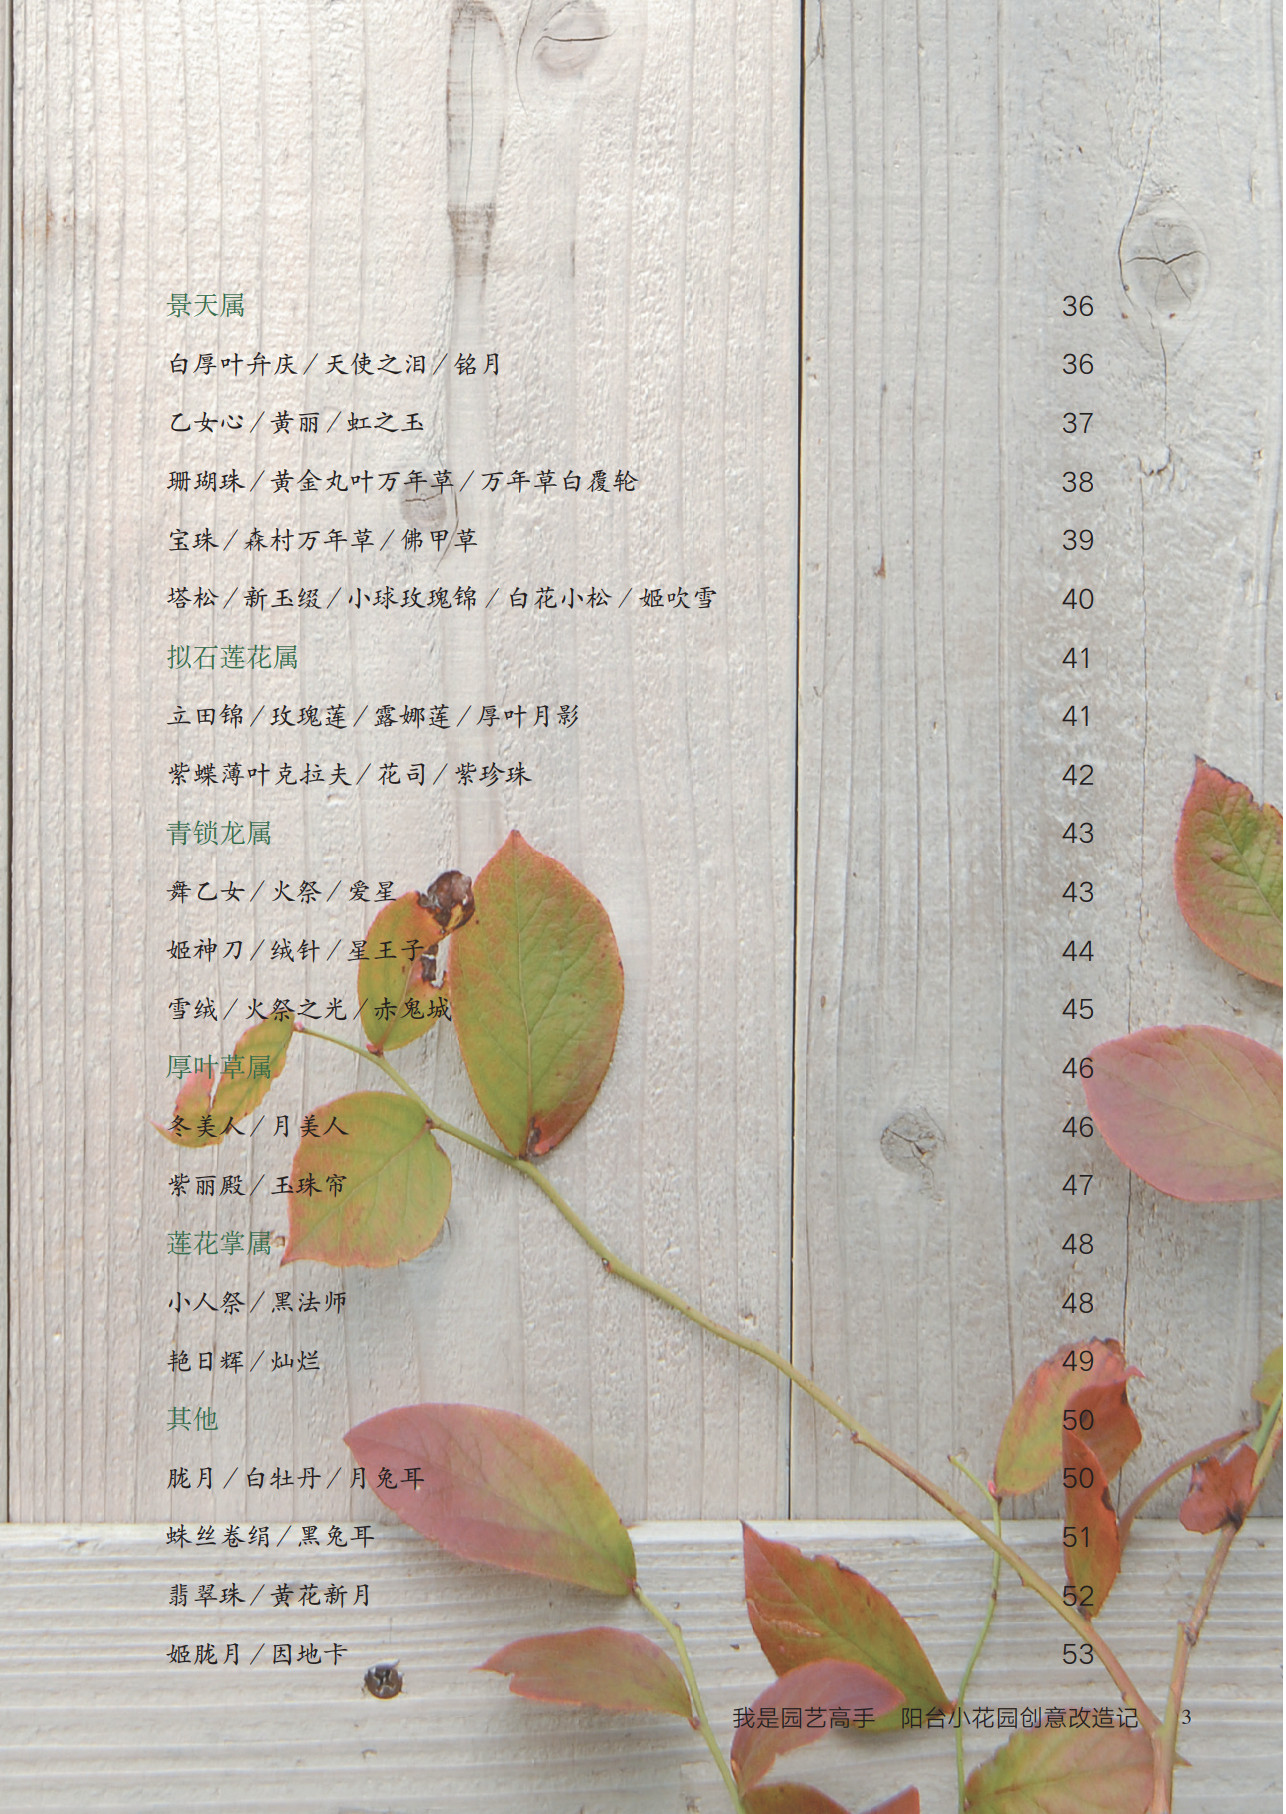 景天属 36
白厚叶弁庆/天使之泪/铭月 36
乙女心/黄丽/虹之玉 37
珊瑚珠/黄金丸叶万年草/万年草白覆轮 38
宝珠/森村万年草/佛甲草 39
塔松/新玉缀/小球玫瑰锦/白花小松/姬吹雪 40
拟石莲花属 41
立田锦/玫瑰莲/露娜莲/厚叶月影 41
紫蝶薄叶克拉夫/花司/紫珍珠 42
青锁龙属 43
舞乙女/火祭/爱星 43
姬神刀/绒针/星王子 44
雪绒/火祭之光/赤鬼城 45
厚叶草属 46
冬美人/月美人 46
紫丽殿/玉珠帘 47
莲花掌属 48
小人祭/黑法师 48
艳日辉/灿烂 49
其他 50
胧月/白牡丹/月兔耳 50
蛛丝卷绢/黑兔耳 51
翡翠珠/黄花新月 52
姬胧月/因地卡 53
我是园艺高手 阳台小花园创意改造记 3